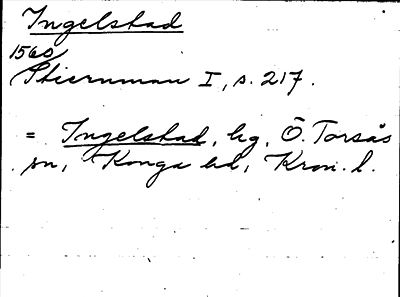 Ingelstad
1560
Stiernman I, s. 217.
= Ingelstad, hg, Ö. Torsås
sn, Konga hd, Kron. l.